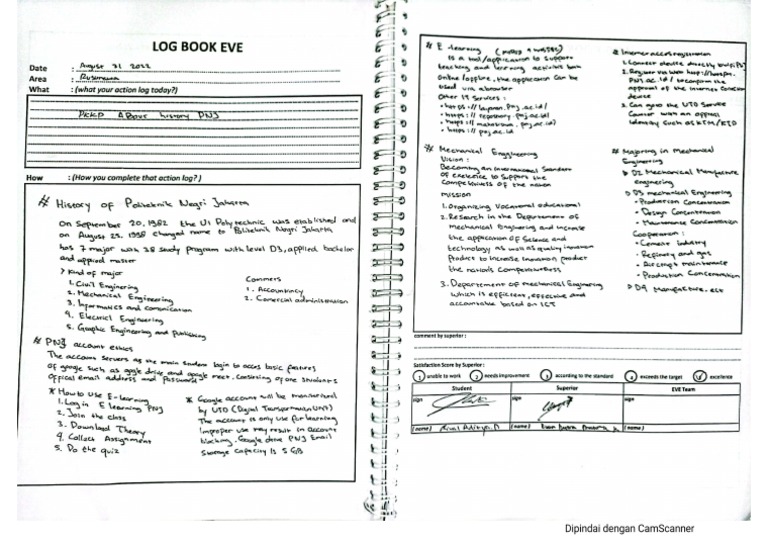 LOG BOOK EVE
Date : August 31 2022
Area :
What : (what your action log today?)
PKKP Above history PNJ
How : (How you complete that action log? )
# History of Politeknik Negri Jakarta
On September 20, 1982 the UI Polytechnic was established and
on August 25, 1998 changed name to Politeknik Negri Jakarta
has 7 major with 38 study program with level D3, applied bachelor
and applied master
> Kind of major
1. Civil Enginering
2. Mechanical Engineering
3. Informatics and comunication
4. Electrical Enginering
5. Graphic Engineering and Publishing
Commers
1. Accountancy
2. Comercial administration
# PNJ account ethics
The account servers as the main student login to acces basic features
of google such as google drive and google meet, consisting of one students
official email address and Password
* How to use E-learning
1. Log in E learning PNJ
2. Join the class
3. Download Theory
4. Collect Assignment
5. Do the quiz
* Google account will be monitored
by UTD (Digital Transformation UNIT)
The account is only use for learning
Improper use may result in account
blocking. Google drive PNJ Email
Storage capacity is 5 GB
# E-learning
Is a tool/application to support
teaching and learning activities both
Online/offline, the application can be
used via browser
Other IT Services :
• https://repository.pnj.ac.id/
• https://pnj.ac.id
* Internet access registration
1. Connect device directly
2. Register via web
PNJ.ac.id/ to confirm the
approval of the internet
device
3. Can go to the UTD Service
Center with an official
Identity such as KTM/KTP
* Mechanical Enggineering
Vision :
Becoming an International Standard
of exelence to Support the
Competitivers of the nation
mission
1. Organizing Vocational educational
2. Research in the Departement of
mechanical Enginering and increase
the application of Science and
technology as well as quality inovation
Product to increase inovation product
the nations Competitiveness
3. Departement of mechanical Enginering
Which is efficient, effective and
accountable based on ICT
* Majoring in Mechanical
Engineering
> D2 Mechanical Manufacture
engineering
> D3 mechanical Engineering
• Production Concentration
• Design Concentration
• Maintenance Concentration
Cooperation :
• Cement Industry
• Refinery and gas
• Aircraft maintenance
• Production Concentration
> D4 Manufacture. ect
comment by superior :
Satisfaction Score by Superior :
1 unable to work 2 needs improvement 3 according to the standard 4 exceeds the target 5 excelence
Student Superior EVE Team
sign sign sign
(name) Rival Aditya.P (name) (name)
Dipindai dengan CamScanner